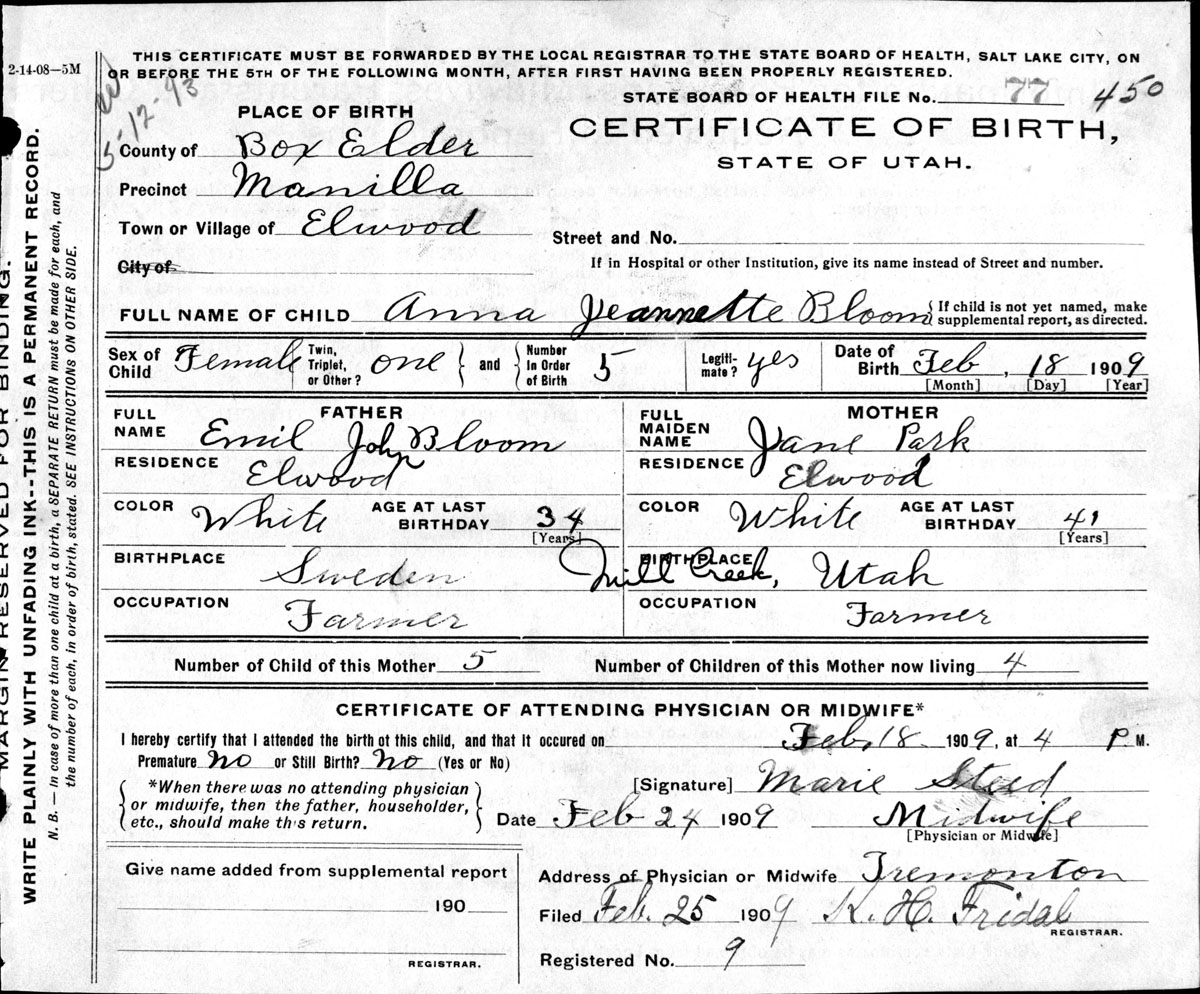 THIS CERTIFICATE MUST BE FORWARDED BY THE LOCAL REGISTRAR TO THE STATE BOARD OF HEALTH, SALT LAKE CITY, ON
2-14-08—5M
OR BEFORE THE 5TH OF THE FOLLOWING MONTH, AFTER FIRST HAVING BEEN PROPERLY REGISTERED.
5-12-93
STATE BOARD OF HEALTH FILE No. 77 450
PLACE OF BIRTH
CERTIFICATE OF BIRTH,
STATE OF UTAH.
County of Box Elder
Precinct Manilla
Town or Village of Elwood
Street and No.
City of
If in Hospital or other Institution, give its name instead of Street and number.
FULL NAME OF CHILD Anna Jeannette Bloom { If child is not yet named, make
supplemental report, as directed.
Sex of Child Female Twin, Triplet, or Other? one } and { Number in Order of Birth 5 Legiti-mate? yes Date of Birth Feb, 18 1909
[Month] [Day] [Year]
FATHER MOTHER
FULL NAME Emil John Bloom FULL MAIDEN NAME Jane Park
RESIDENCE Elwood RESIDENCE Elwood
COLOR White AGE AT LAST BIRTHDAY 34 [Years] COLOR White AGE AT LAST BIRTHDAY 41 [Years]
BIRTHPLACE Sweden BIRTHPLACE Mill Creek, Utah
OCCUPATION Farmer OCCUPATION Farmer
Number of Child of this Mother 5 Number of Children of this Mother now living 4
CERTIFICATE OF ATTENDING PHYSICIAN OR MIDWIFE*
I hereby certify that I attended the birth of this child, and that it occured on Feb, 18 1909, at 4 P M.
Premature No or Still Birth? No (Yes or No)
{ *When there was no attending physician
or midwife, then the father, householder,
etc., should make this return. }
[Signature] Marie Steed
Date Feb 24 1909 Midwife
[Physician or Midwife]
Give name added from supplemental report
190
REGISTRAR.
Address of Physician or Midwife Tremonton
Filed Feb. 25 1909 K. H. Fridal
REGISTRAR.
Registered No. 9
MARGIN RESERVED FOR BINDING.
WRITE PLAINLY WITH UNFADING INK--THIS IS A PERMANENT RECORD.
N. B.—In case of more than one child at a birth, a SEPARATE RETURN must be made for each, and
the number of each, in order of birth, stated. SEE INSTRUCTIONS ON OTHER SIDE.